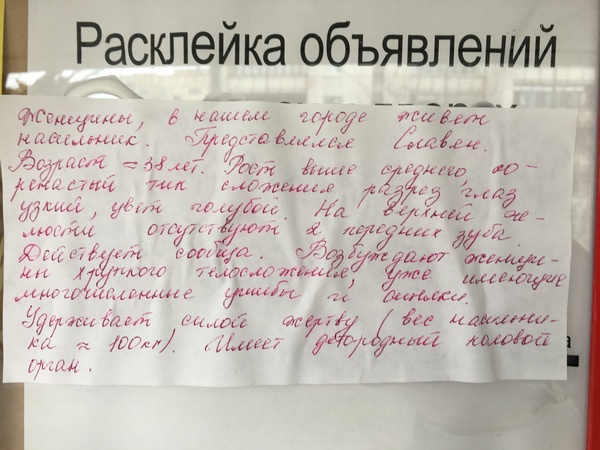 Расклейка объявлений
Женщины, в нашем городе живет
насильник. Представляется Славян.
Возраст ≈ 38 лет. Рост выше среднего, ко-
ренастый тип сложения, разрез глаз
узкий, цвет голубой. На верхней че-
люсти отсутствуют 2 передних зуба.
Действует сообща. Возбуждают женщи-
ны хрупкого телосложения, уже имеющие
многочисленные ушибы и синяки.
Удерживает силой жертву (вес насильни-
ка ≈ 100 кг). Имеет детородный половой
орган.